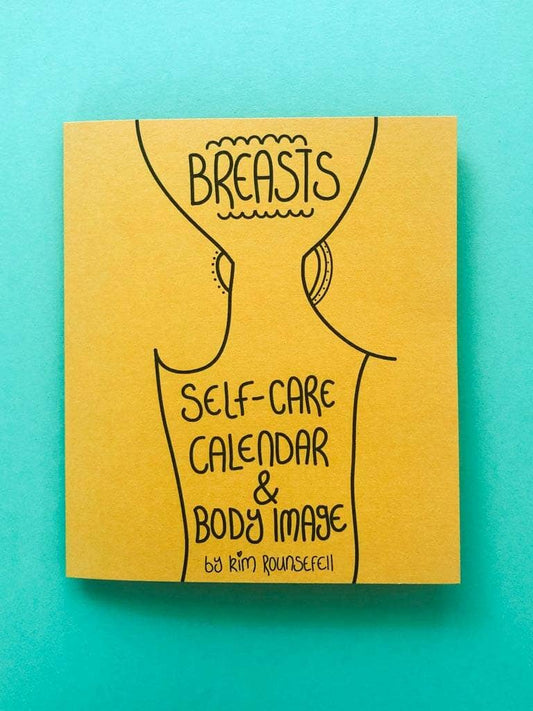 BREASTS
SELF-CARE
CALENDAR
&
BODY IMAGE
by Kim Rounsefell